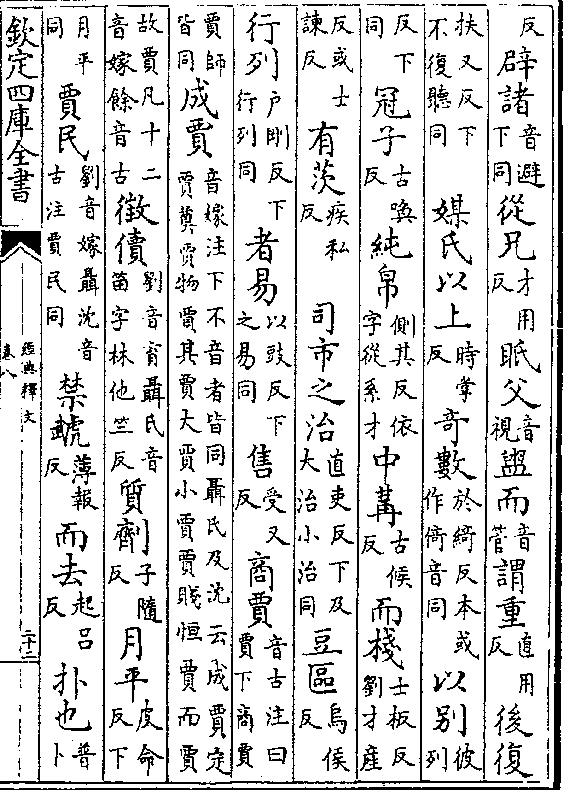 反辟諸音避下同從兄才用反眡父音視盥而音管謂重直用反後復
扶又反下不復聽同媒氏以上時掌反奇數於綺反本或作倚音同以別彼列
反下同冠子古喚反純帛側其反依字從系才中冓古候反而棧士板反劉才產
反或士諫反有茨疾私反司市之治直吏反下及大治小治同豆區烏侯反
行列戶剛反下行列同者易以豉反下之易同售受又反商賈音古注曰賈下商賈
賈師皆同成賈音嫁注下不音者皆同聶氏及沈云成賈定賈奠賈物賈其賈大賈小賈賈賤恒賈而賈
故賈凡十二音嫁餘音古徵儥劉音育聶氏音笛字林他竺反質劑子隨反月平皮命反下
月平同賈民劉音嫁聶沈音古注賈民同禁虣薄報反而去起呂反扑也普卜
欽定四庫全書
經典釋文
卷八
二十三